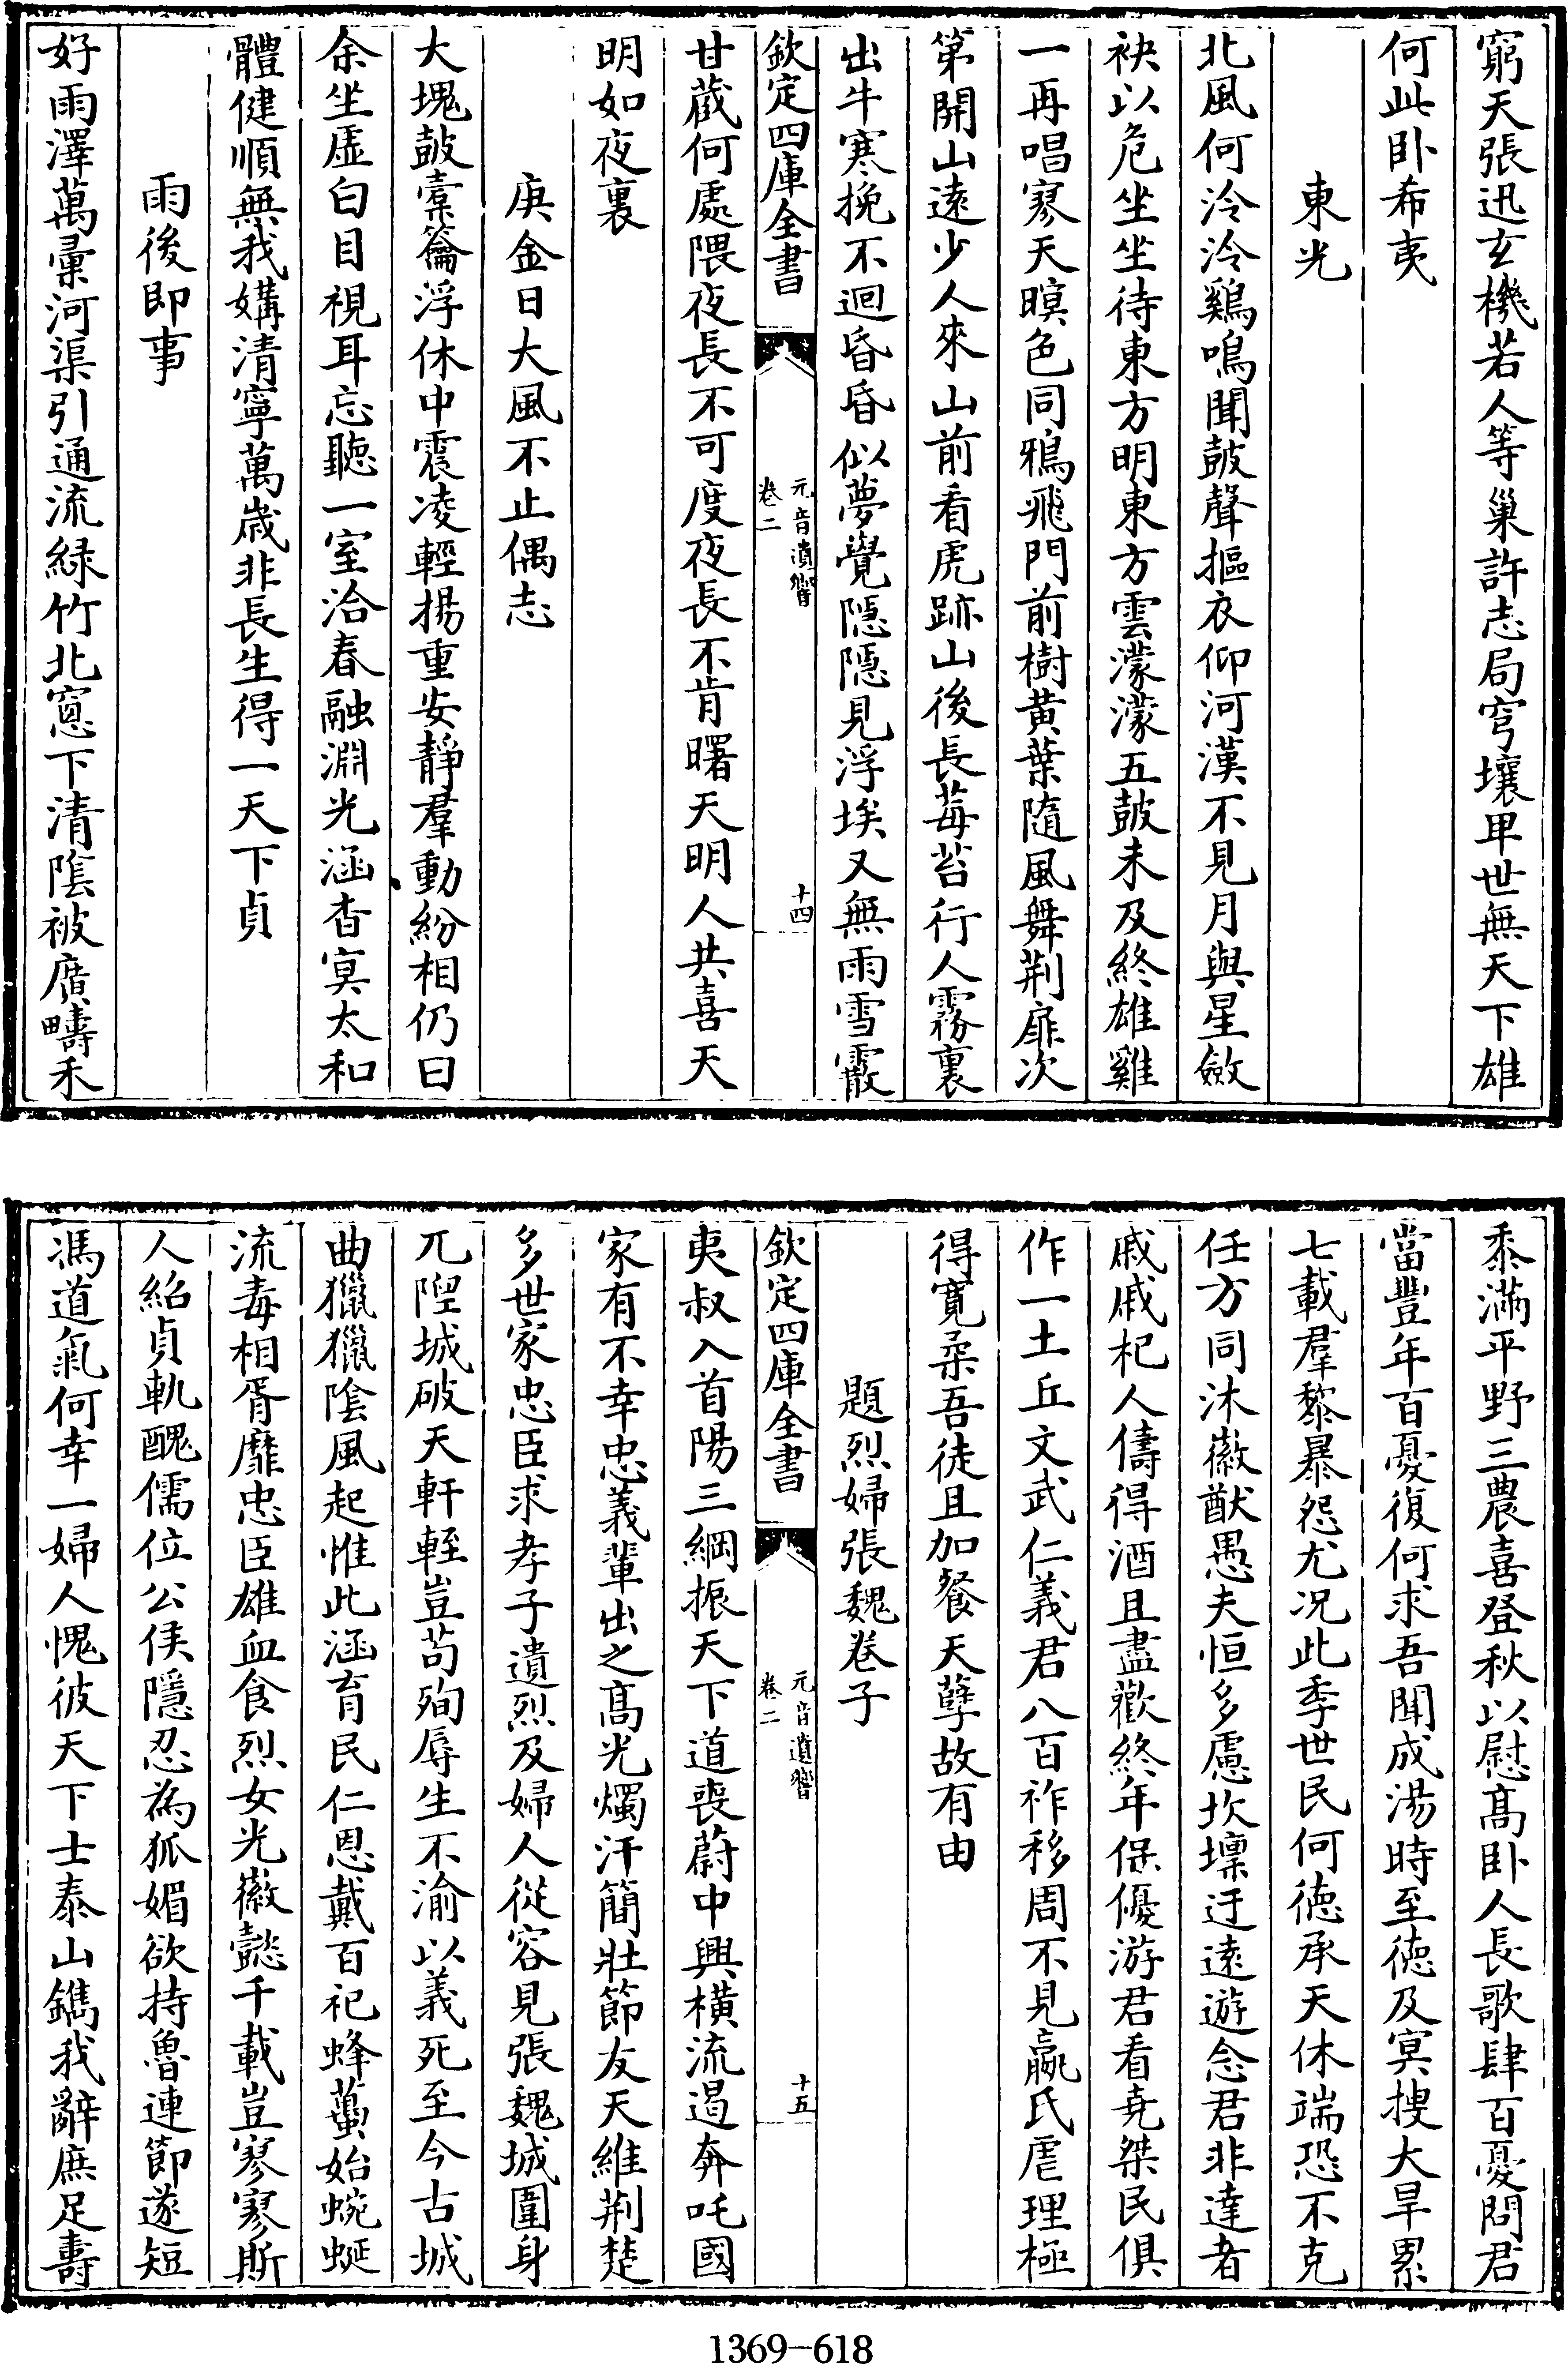 窮天張迅玄機若人等巢許志局穹壤甲世無天下雄
何此卧希夷
東光
北風何泠泠鷄鳴聞鼓聲摳衣仰河漢不見月與星斂
袂以危坐坐待東方明東方雲濛濛五鼓未及終雄雞
一再唱寥天暝色同鴉飛門前樹黄葉隨風舞荆扉次
第開山遠少人來山前看虎跡山後長莓苔行人霧裏
出牛寒挽不迴昏昏似夢覺隱隱見浮埃又無雨雪霰
欽定四庫全書
元音遺響
卷二
十四
甘蕆何處隈夜長不可度夜長不肯曙天明人共喜天
明如夜裏
庚金日大風不止偶志
大塊鼓橐籥浮休中震凌輕揚重安靜羣動紛相仍曰
余坐虚白目視耳忘聽一室洽春融淵光涵杳冥太和
體健順無我媾清寧萬歳非長生得一天下貞
雨後即事
好雨澤萬彙河渠引通流緑竹北窻下清隂被廣疇禾
黍滿平野三農喜登秋以慰髙卧人長歌肆百憂問君
當豐年百憂復何求吾聞成湯時至徳及冥搜大旱累
七載羣黎暴怨尤况此季世民何徳承天休端恐不克
任方同沐徽猷愚夫恒多慮坎壈迂遠遊念君非達者
戚戚杞人儔得酒且盡歡終年保優游君看堯桀民俱
作一土丘文武仁義君八百祚移周不見嬴氏虐理極
得寛柔吾徒且加餐天孽故有由
題烈婦張魏卷子
欽定四庫全書
元音遺響
卷二
十五
夷叔入首陽三綱振天下道喪蔚中興横流遏奔吒國
家有不幸忠義輩出之髙光燭汗簡壯節友天維荆楚
多世家忠臣求孝子遺烈及婦人從容見張魏城圍身
兀隉城破天軒輊豈苟殉辱生不渝以義死至今古城
曲獵獵隂風起惟此涵育民仁恩戴百祀蜂蠆始蜿蜒
流毒相胥靡忠臣雄血食烈女光徽懿千載豈寥寥斯
人紹貞軌醜儒位公侯隱忍為狐媚欲持魯連節遂短
馮道氣何幸一婦人愧彼天下士泰山鐫我辭庶足壽
1369-618